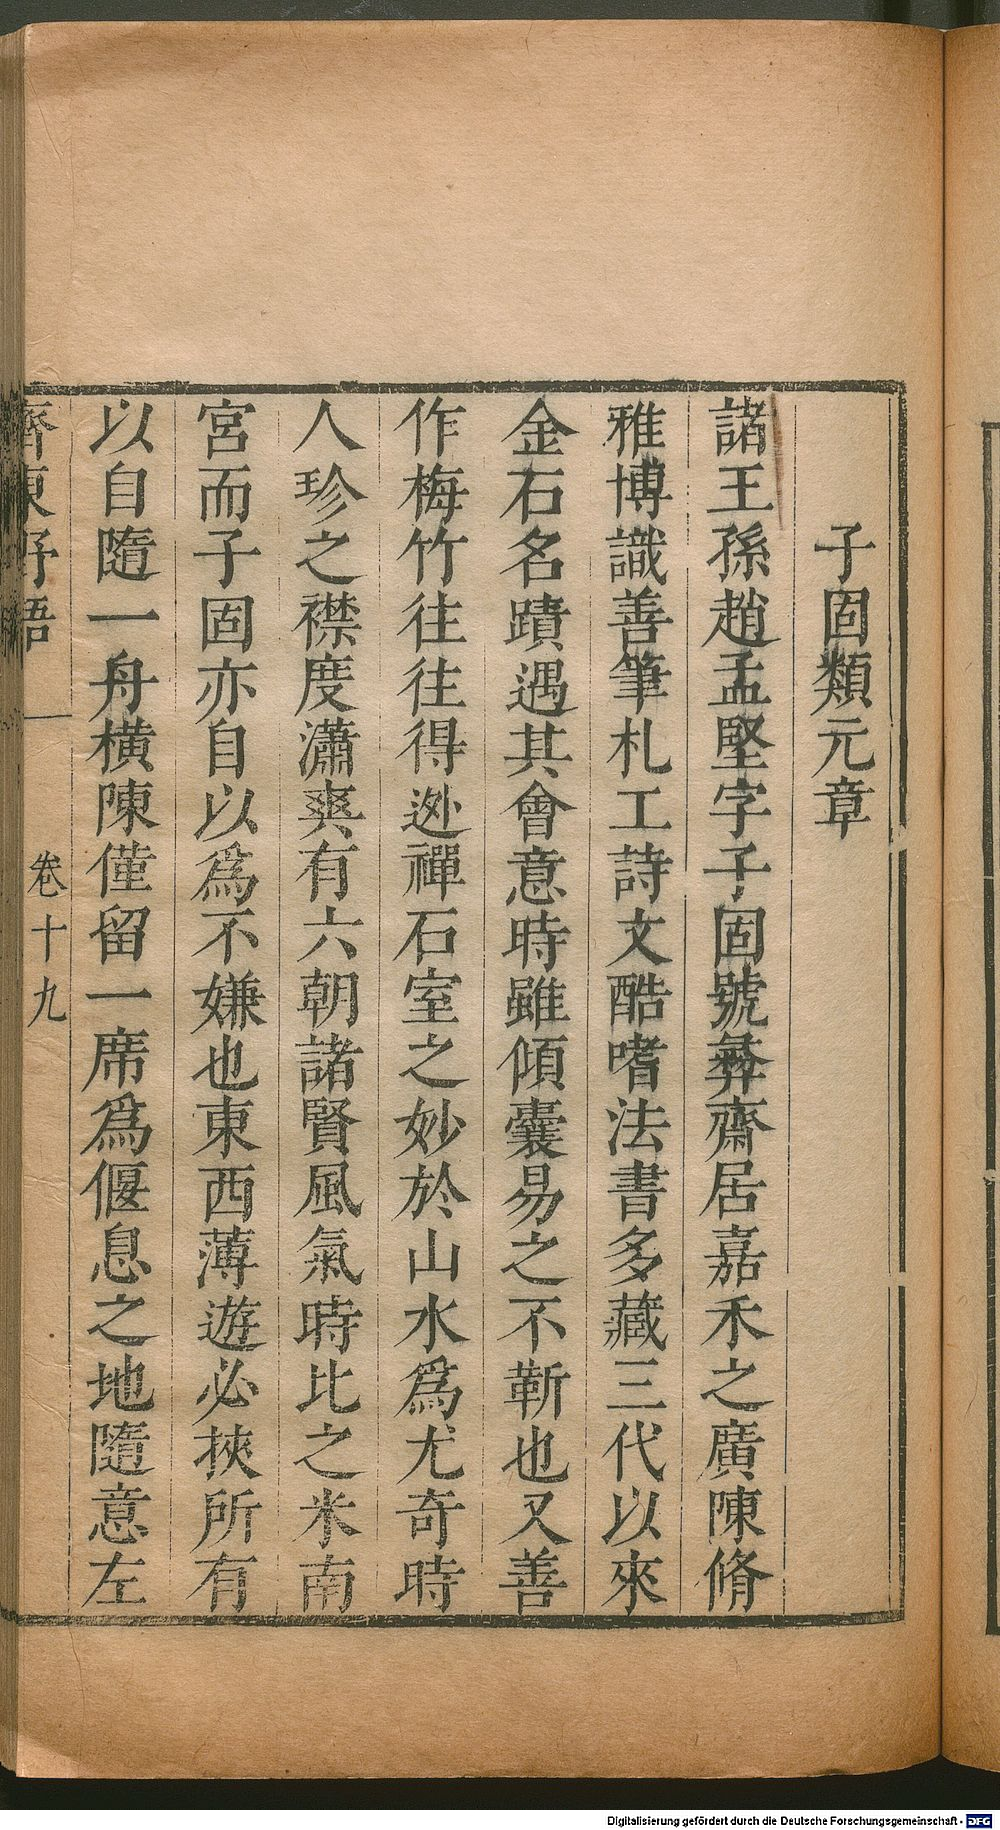 子固類元章
諸王孫趙孟堅字子固號彝齋居嘉禾之廣陳脩
雅博識善筆札工詩文酷嗜法書多藏三代以來
金石名蹟遇其會意時雖傾囊易之不靳也又善
作梅竹往往得逃禪石室之妙於山水爲尤奇時
人珍之襟度瀟爽有六朝諸賢風氣時比之米南
宮而子固亦自以爲不嫌也東西薄遊必挾所有
以自隨一舟橫陳僅留一席爲偃息之地隨意左
齊東野語
卷十九
Digitalisierung gefördert durch die Deutsche Forschungsgemeinschaft - DFG